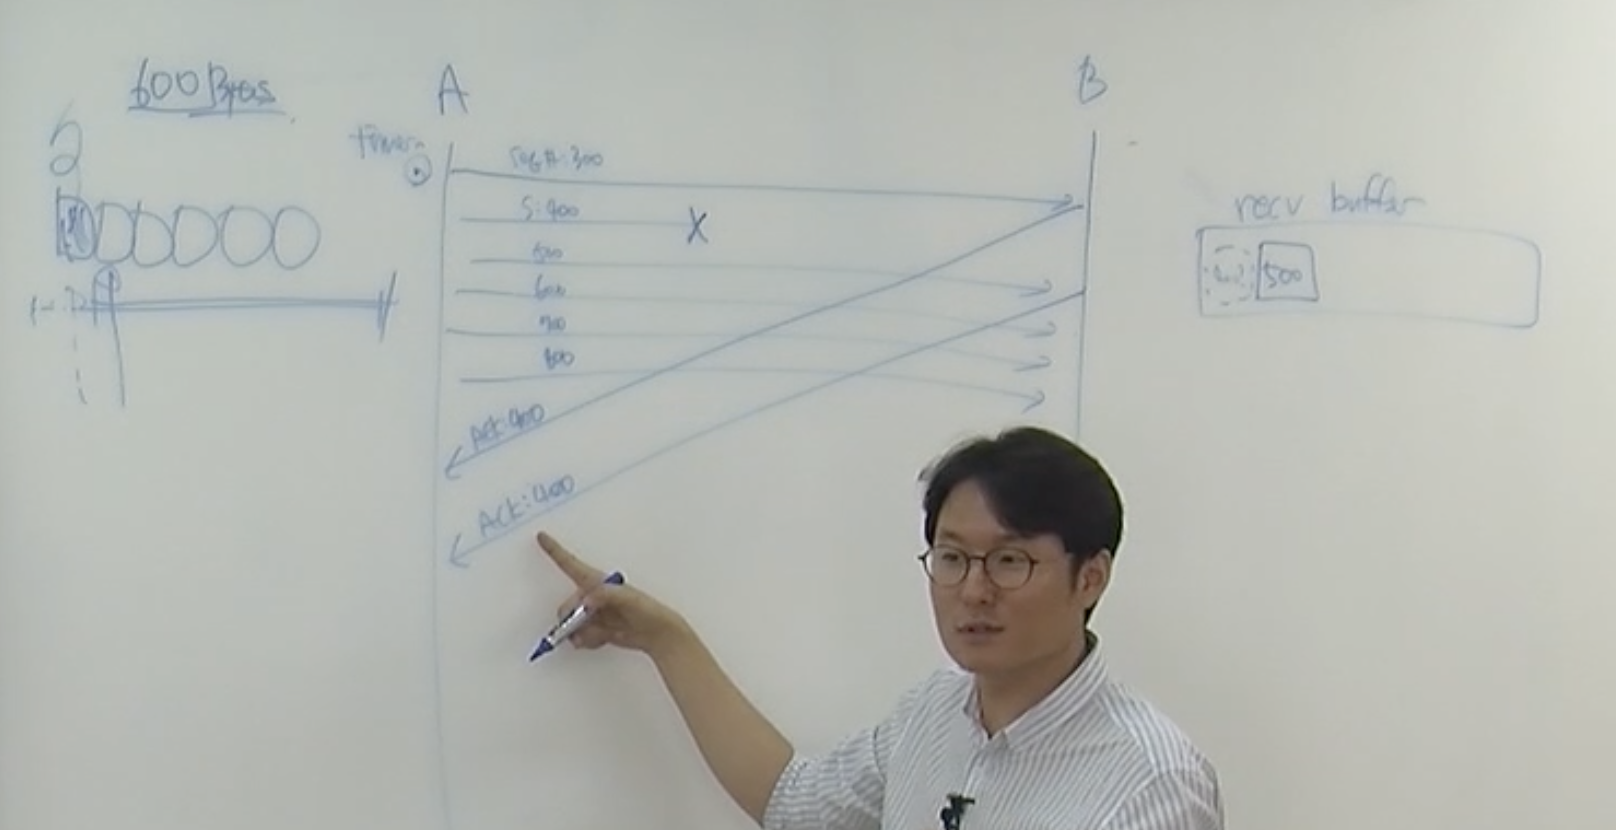 600 Bytes
A
B
timer
Seq #: 300
S: 400
X
500
600
700
800
Ack: 400
Ack: 400
recv buffer
500